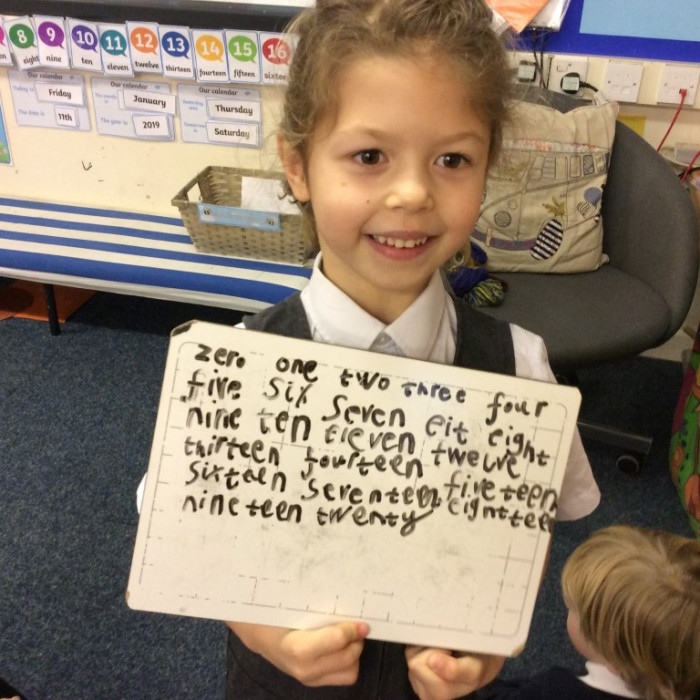 8 9 10 11 12 13 14 15 16
eight nine ten eleven twelve thirteen fourteen fifteen sixteen
Our calendar Our calendar Our calendar
Friday January Thursday
The date is 11th The year is 2019 Saturday
zero one two three four
five six seven eit eight
nine ten eleven twelve
thirteen fourteen fiveteen
sixteen seventeen eightteen
nineteen twenty